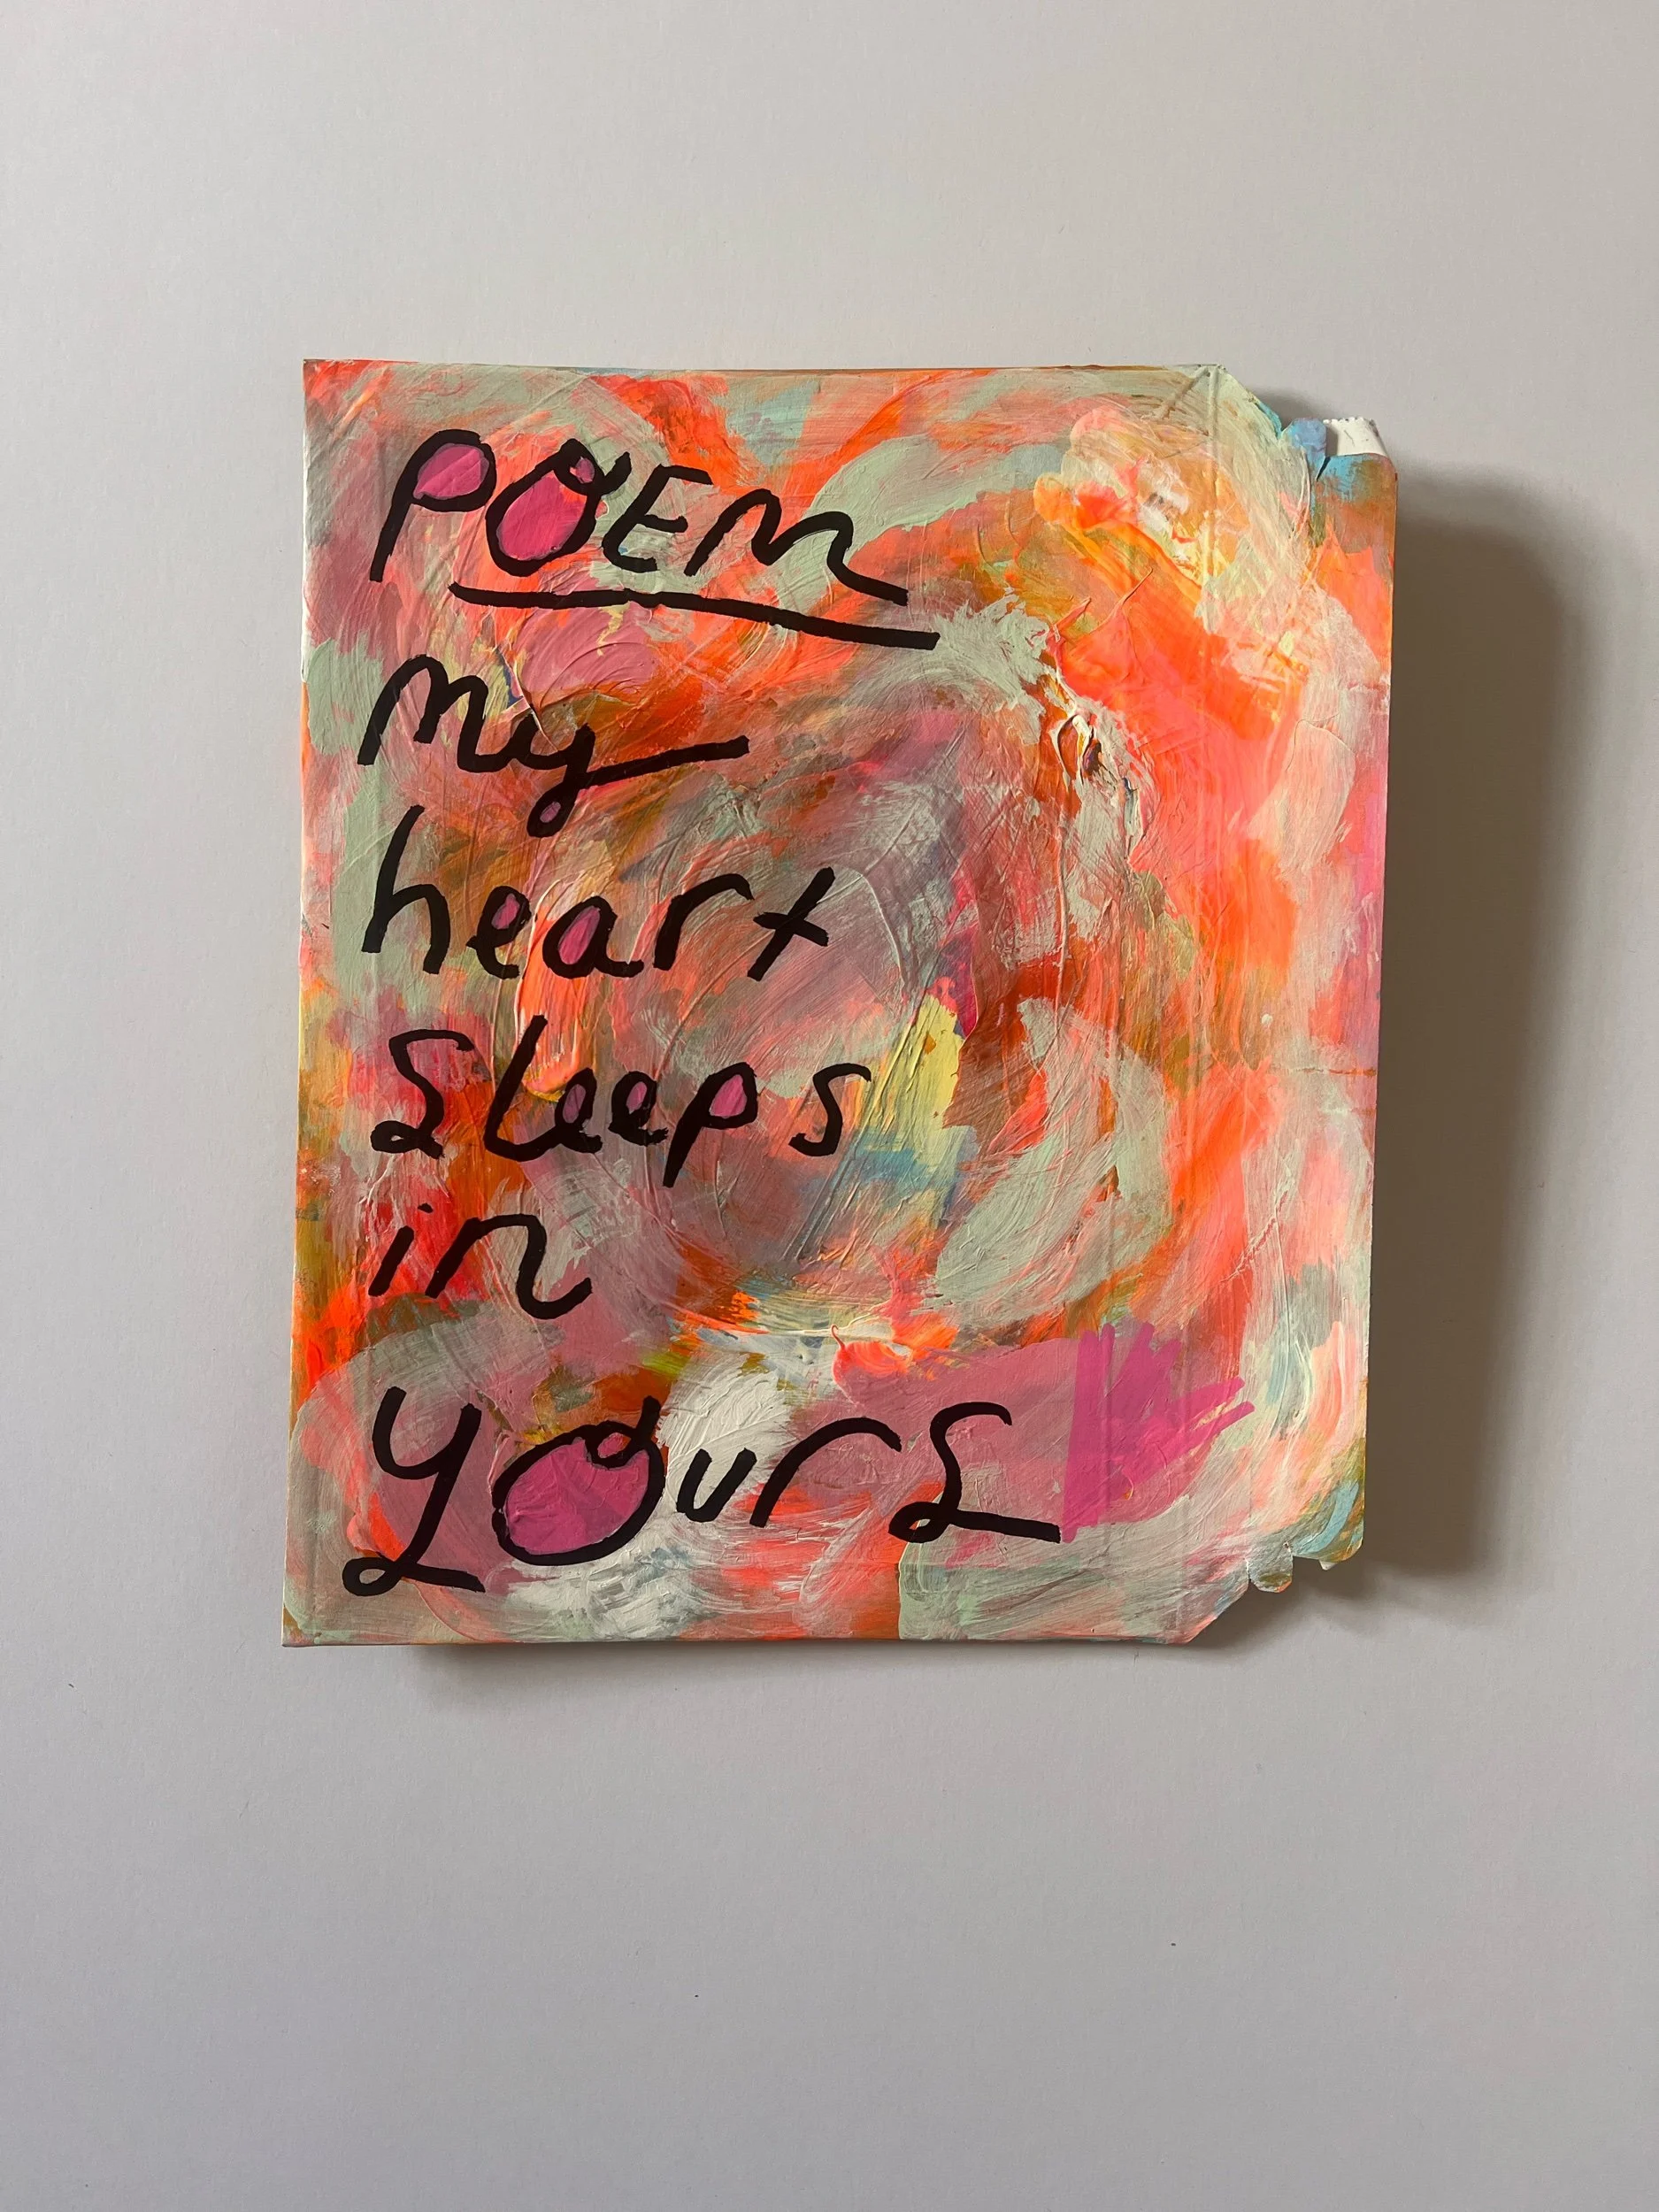 POEM
my
heart
Sleeps
in
yours